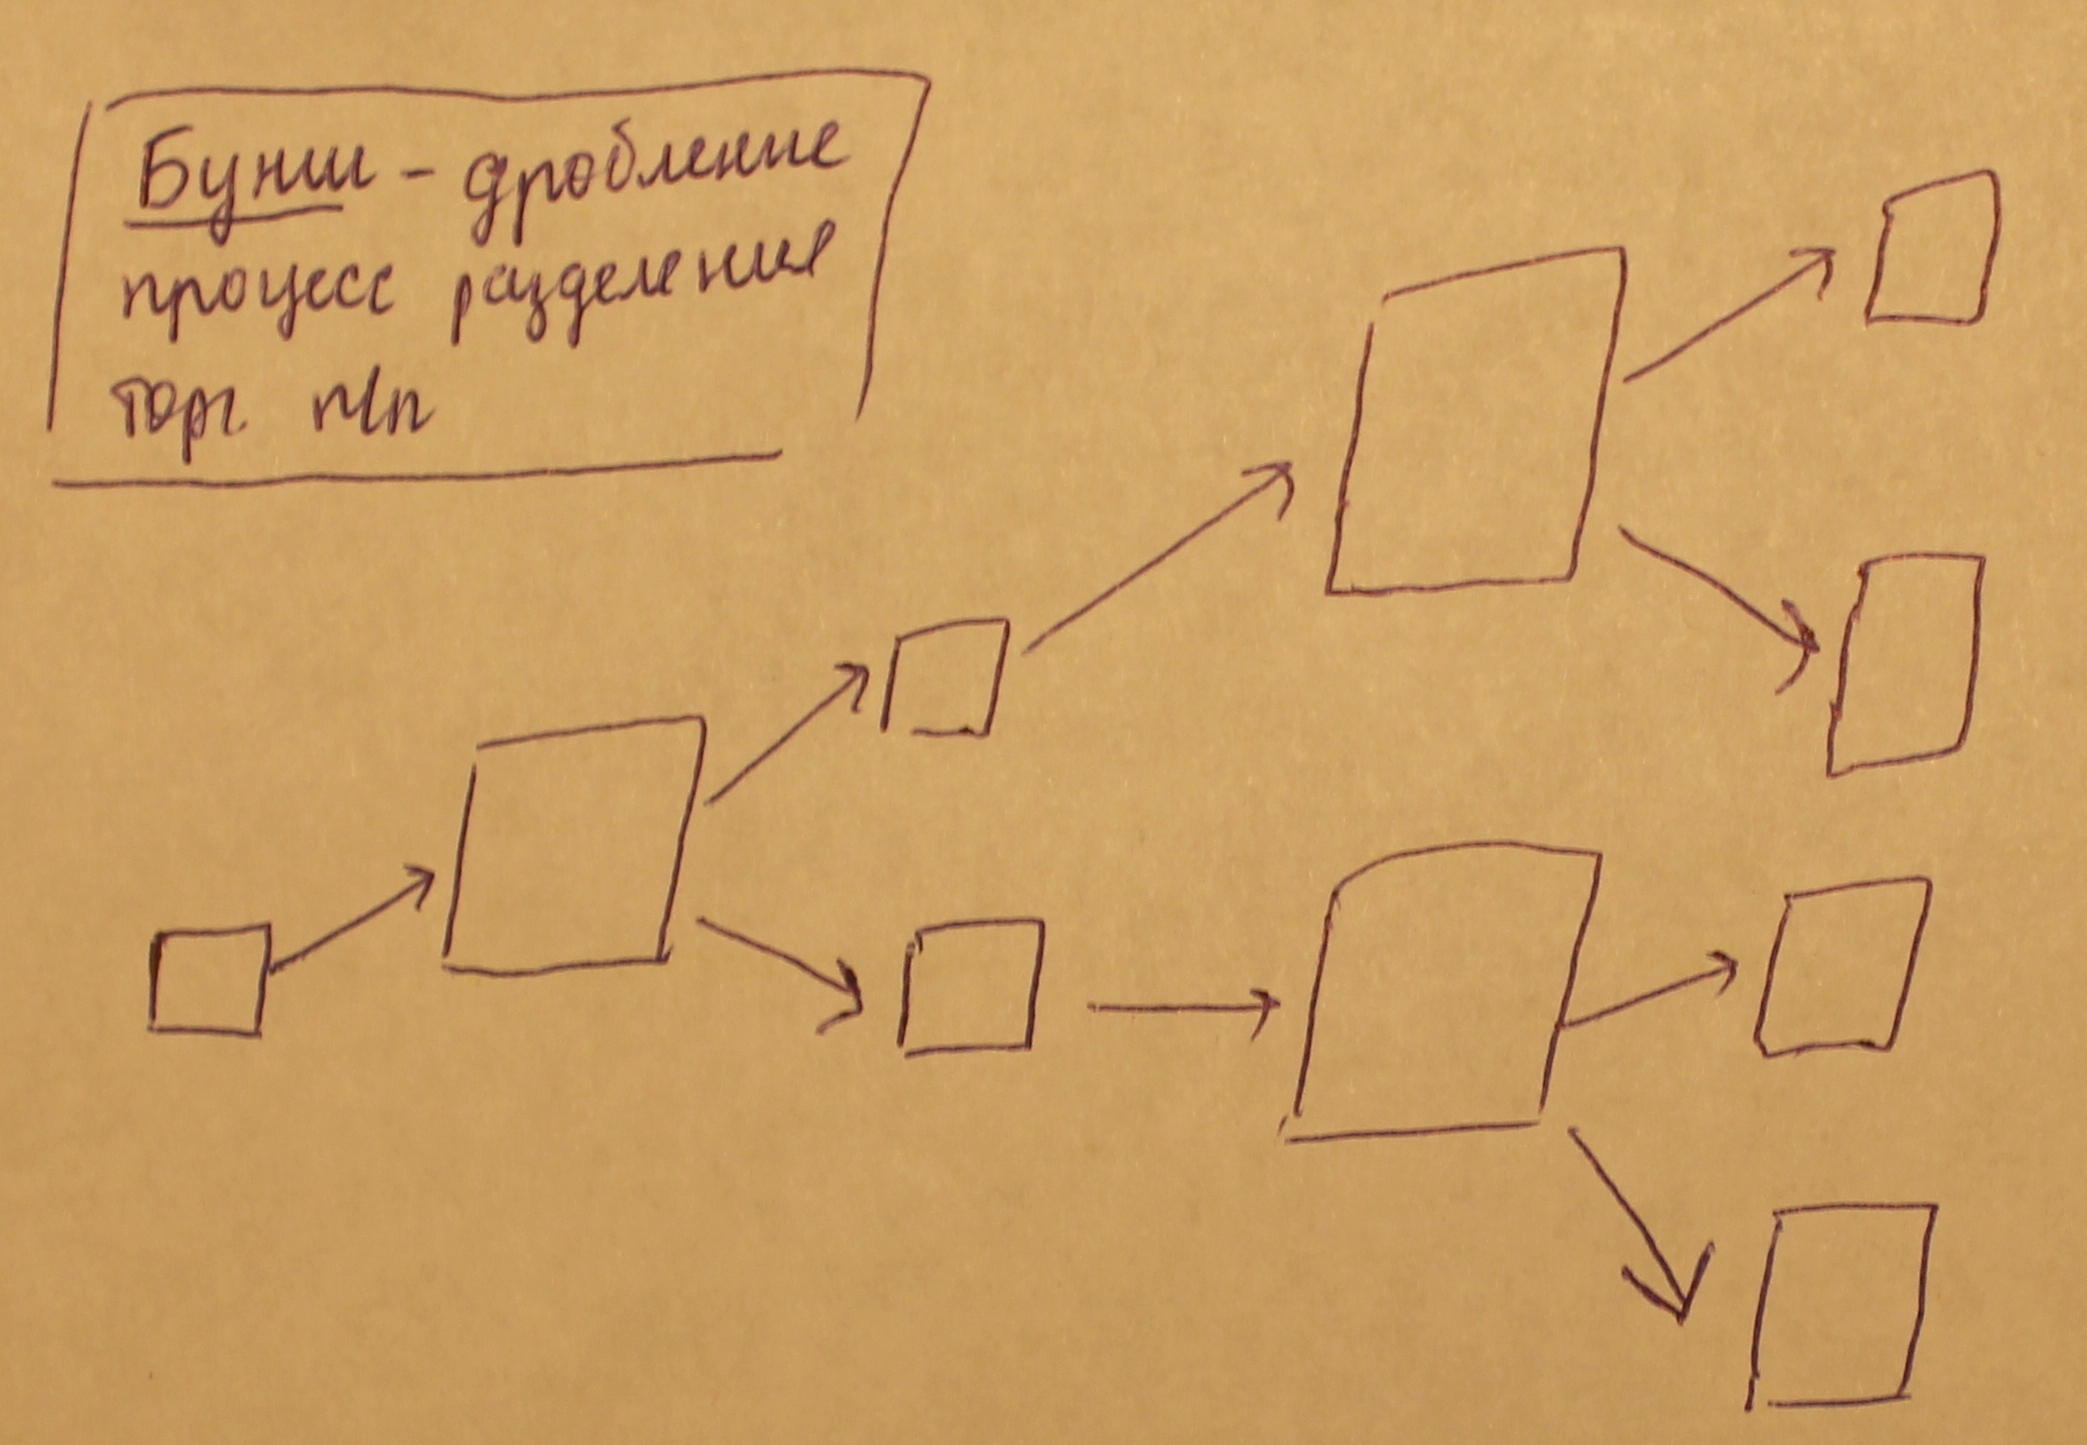 Бунш - дробление
процесс разделения
торг. п/п